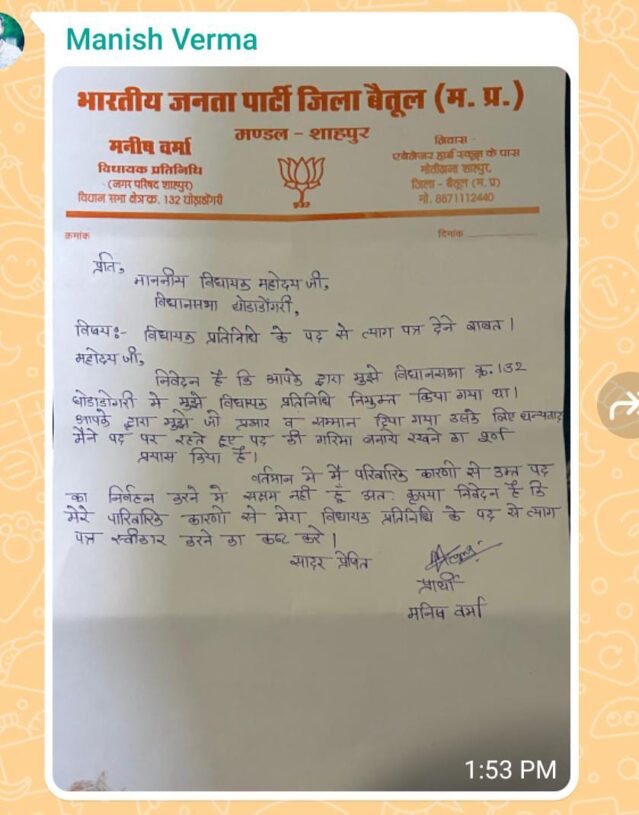 Manish Verma
भारतीय जनता पार्टी जिला बैतूल (म. प्र.)
मण्डल - शाहपुर
मनीष वर्मा
विधायक प्रतिनिधि
(नगर परिषद शाहपुर)
विधान सभा क्षेत्र क्र. 132 घोड़ाडोंगरी
निवास
एबेनेजर हाई स्कूल के पास
मोतीढाना शाहपुर,
जिला - बैतूल (म. प्र)
मो. 8871112440
क्रमांक
दिनांक
प्रति,
माननीय विधायक महोदय जी,
विधानसभा घोडाडोंगरी,
विषयः- विधायक प्रतिनिधि के पद से त्याग पत्र देने बाबत।
महोदय जी,
निवेदन है कि आपके द्वारा मुझे विधानसभा क्र. 132
घोडाडोगरी मे मुझे विधायक प्रतिनिधि नियुक्त किया गया था।
आपके द्वारा मुझे जो प्रभार व सम्मान दिया गया उसके लिए धन्यवाद
मैने पद पर रहते हुए पद की गरिमा बनाये रखने का पूर्ण
प्रयास किया है।
वर्तमान मे मैं परिवारिक कारणो से उक्त पद
का निर्वहन करने मे सक्षम नहीं हूँ अतः कृपया निवेदन है कि
मेरे पारिवारिक कारणो से मेरा विधायक प्रतिनिधि के पद से त्याग
पत्र स्वीकार करने का कष्ट करे।
सादर प्रेषित
प्रार्थी
मनिष वर्मा
1:53 PM